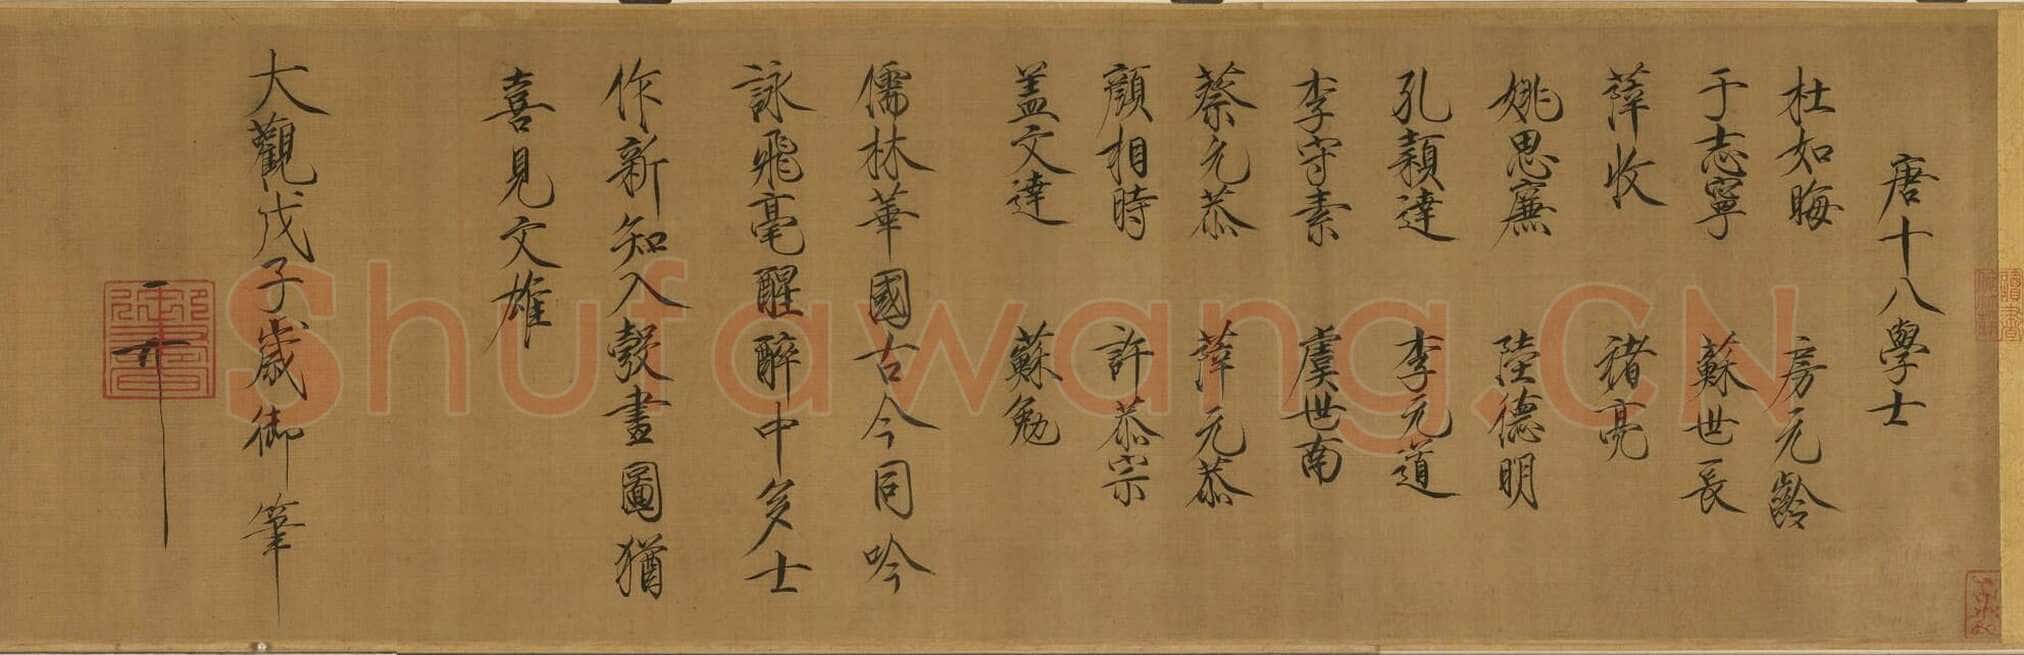 唐十八學士
杜如晦 房元齡
于志寧 蘇世長
薛收 褚亮
姚思廉 陸德明
孔穎達 李元道
李守素 虞世南
蔡元恭 薛元恭
顏相時 許恭宗
盖文達 蘇勉
儒林華國古今同吟
詠飛毫醒醉中多士
作新知入彀畫圖猶
喜見文雄
大觀戊子歲御筆
御書
Shufawang.CN